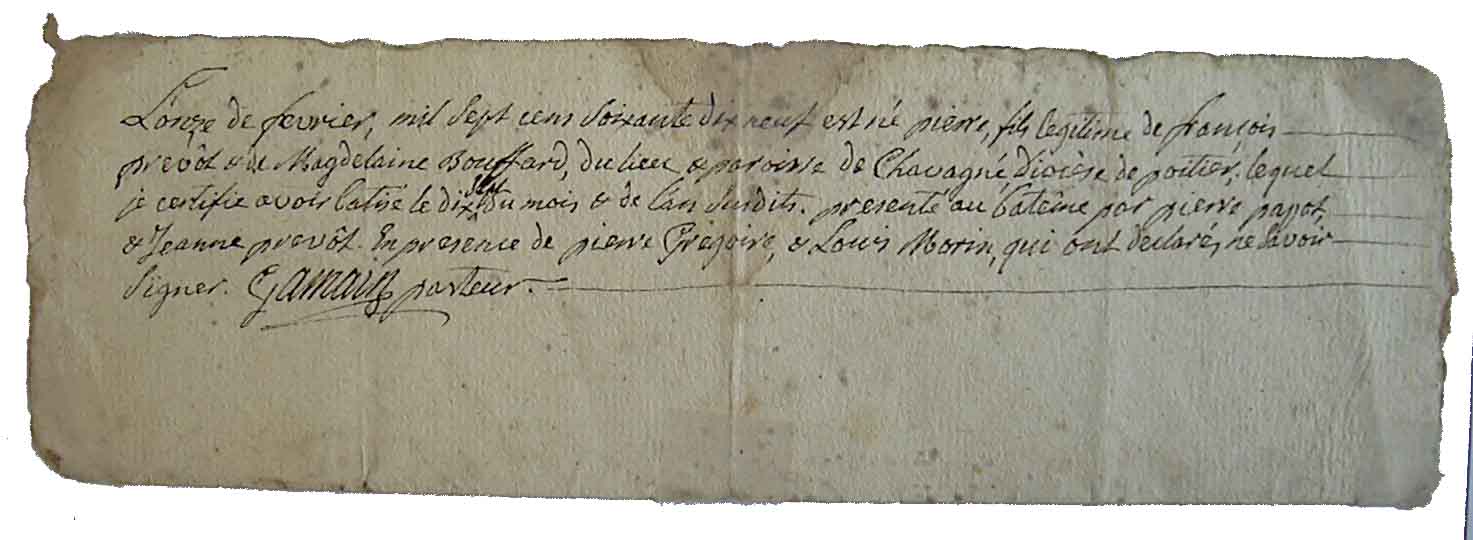 L'onze de fevrier, mil sept cens soixante dix neuf est né pierre, fils legitime de françois
prevôt & de Magdelaine Bouffard, du lieu & paroisse de Chavagné, diocèse de poitier, lequel
je certifie avoir batisé le dix sept du mois & de l'an susdits. presenté au batême par pierre papot,
& Jeanne prevôt. En presence de pierre Gregoire, & Louis Morin, qui ont declaré, ne savoir
signer. Gamain pasteur.